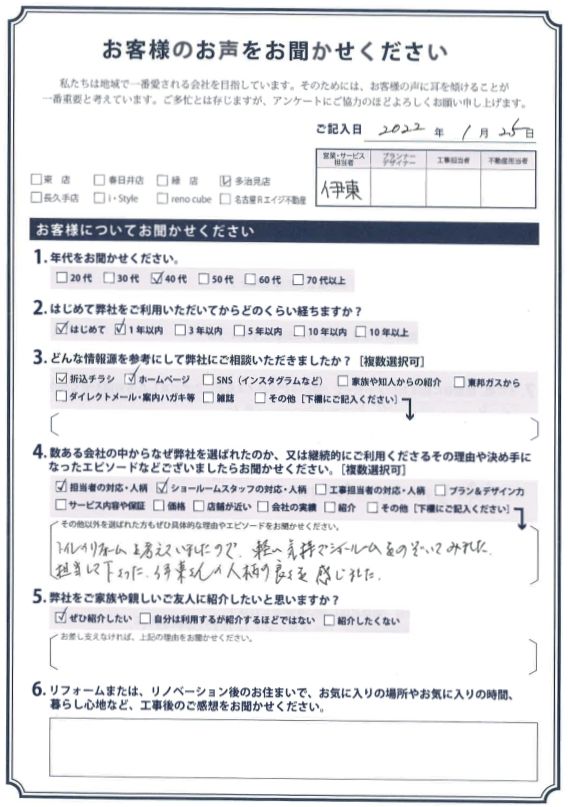 お客様のお声をお聞かせください
私たちは地域で一番愛される会社を目指しています。そのためには、お客様の声に耳を傾けることが
一番重要と考えています。ご多忙とは存じますが、アンケートにご協力のほどよろしくお願い申し上げます。
ご記入日 2022 年 1 月 25 日
営業・サービス担当者 プランナーデザイナー 工事担当者 不動産担当者
伊東
□東 店 □春日井店 □緑 店 ☑多治見店
□長久手店 □i・Style □reno cube □名古屋Rエイジ不動産
お客様についてお聞かせください
1. 年代をお聞かせください。
□20代 □30代 ☑40代 □50代 □60代 □70代以上
2. はじめて弊社をご利用いただいてからどのくらい経ちますか？
☑はじめて ☑1年以内 □3年以内 □5年以内 □10年以内 □10年以上
3. どんな情報源を参考にして弊社にご相談いただきましたか？［複数選択可］
☑折込チラシ ☑ホームページ □SNS（インスタグラムなど） □家族や知人からの紹介 □東邦ガスから
□ダイレクトメール・案内ハガキ等 □雑誌 □その他［下欄にご記入ください］
4. 数ある会社の中からなぜ弊社を選ばれたのか、又は継続的にご利用くださるその理由や決め手に
なったエピソードなどございましたらお聞かせください。［複数選択可］
☑担当者の対応・人柄 ☑ショールームスタッフの対応・人柄 □工事担当者の対応・人柄 □プラン&デザイン力
□サービス内容や保証 □価格 □店舗が近い □会社の実績 □紹介 □その他［下欄にご記入ください］
その他以外を選ばれた方もぜひ具体的な理由やエピソードをお聞かせください。
トイレのリフォームを考えていましたので、軽い気持でショールームをのぞいてみました。
担当して下さった、伊東さんの人柄の良さを感じました。
5. 弊社をご家族や親しいご友人に紹介したいと思いますか？
☑ぜひ紹介したい □自分は利用するが紹介するほどではない □紹介したくない
お差し支えなければ、上記の理由をお聞かせください。
6. リフォームまたは、リノベーション後のお住まいで、お気に入りの場所やお気に入りの時間、
暮らし心地など、工事後のご感想をお聞かせください。